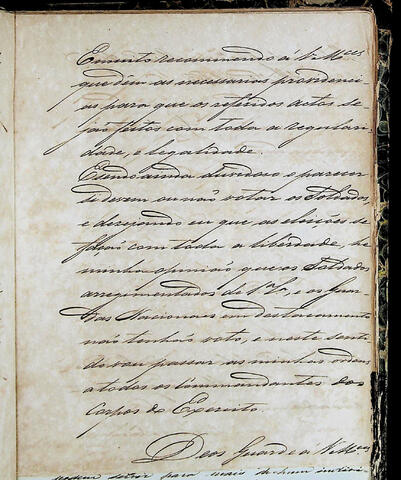 Emuito recommendo á V. M.ces
que dêm as necessarias providenci
as para que os referidos actos se
jão feitos com toda a regulari
dade, e legalidade.
Tendo ainda duvidas o parecer
si devem ou não votar os Soldados
e desejando eu que as eleições se
fação com toda a liberdade, he
minha opinião que os Soldados
arregimentados de 1.ª La, e os Guar
das Nacionaes em destacamento
não tenhão voto, e neste senti
do vou passar as minhas ordens
a todos os Commandantes dos
Corpos do Exercito.
Deos Guarde á V. M.ces
podem señor para mais de hum